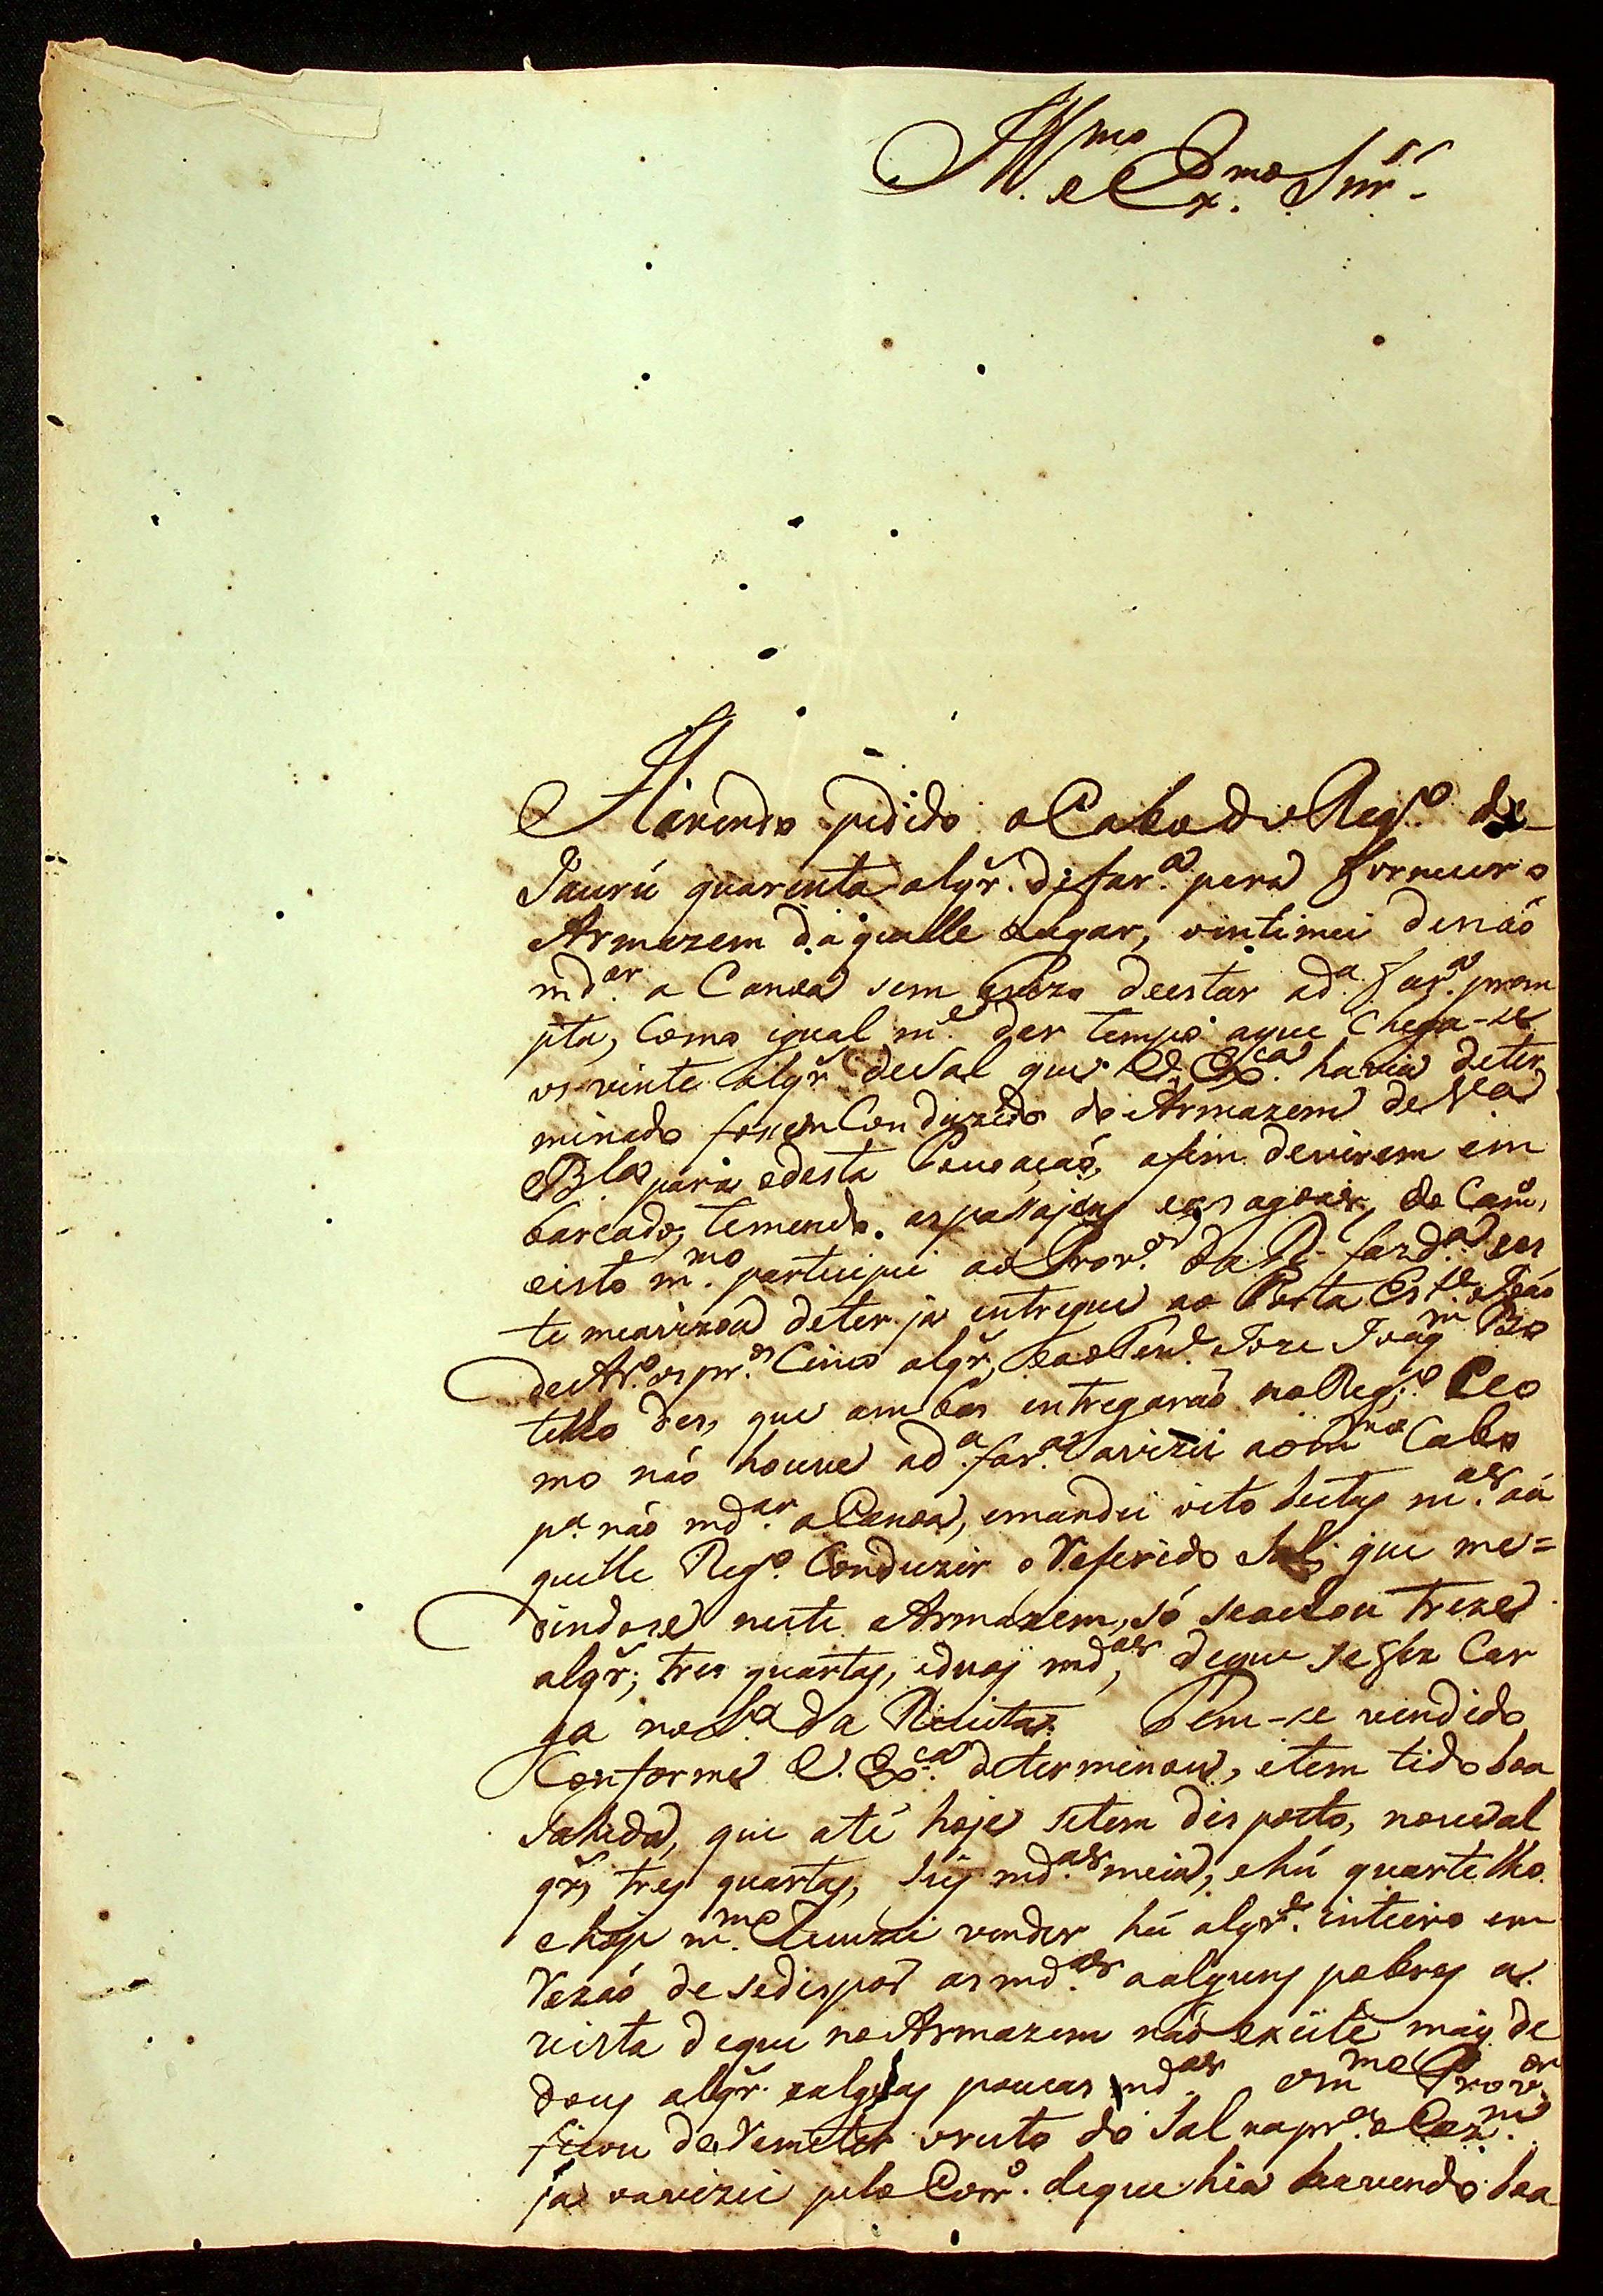 Ill.mo e Ex.mo Snr̃.
Havendo pedido o Cabo do Reg.o de
Jaurú quarenta alqr̃. de far.a para fornecer o
Armazem d'aquelle Lugar, ointimei denaõ
md.ar a Canoa sem avizo deestar ad.a far.a prom
pta, como igual m.e dar tempo aque chega-se
os vinte alqr̃. deSal que V. Ex.ca havia deter
minado fossem Conduzido do Armazem de V.a
B.la para odesta Povoaçaõ, afim devirem em
barcado, temendo. as passajens eas agoas, do Cam.o,
eisto m.mo participei ao Prov.or da R. fazd.a es
te meavizou deter ja entregue ao Porta Est.e Joaõ
de Ar.o os pr.os Cinco alqr̃, eao Ten.e Joze Joaq.m Bo
telho des, que ambos entregaraõ no Reg.o Co
mo naõ houve ad.a far.a avizei aom.mo Cabo
p.a naõ md.ar a Canoa, emandei oito bestas m.es aá
quelle Reg.o Conduzir o Referido Sal, que me=
dindose neste Armazem, só seachou treze
alqr̃; tres quartas, eduas md.as, deque sefez Car
ga no L.o da Receita. Tem-se vendido
Conforme V. Ex.ca determinou, etem tido boa
Sahida, que até hoje setem disposto, noveal
qr̃, tres quartas, seis md.as meia, ehú quartilho.
ehoje m.mo vender hú alqr.e inteiro em
Rezaõ de sedispor as md.as aalguns pobres a
vista deque no Armazem naõ exziste mais de
dous alqr̃. ealguas poucas md.as Om.mo Prov.or
ficou deRemeter oresto do Sal napr.a
ja oavizei pelo Corr.o deque hia havendo boa